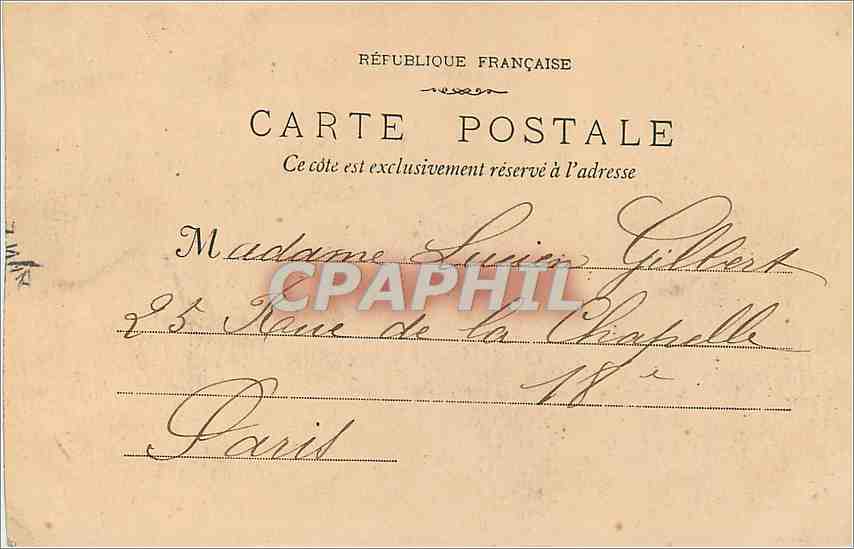 RÉPUBLIQUE FRANÇAISE
CARTE POSTALE
Ce côté est exclusivement réservé à l'adresse
Madame Lucien Gilbert
CPAPHIL
25 Rue de la Chapelle
18e
Paris